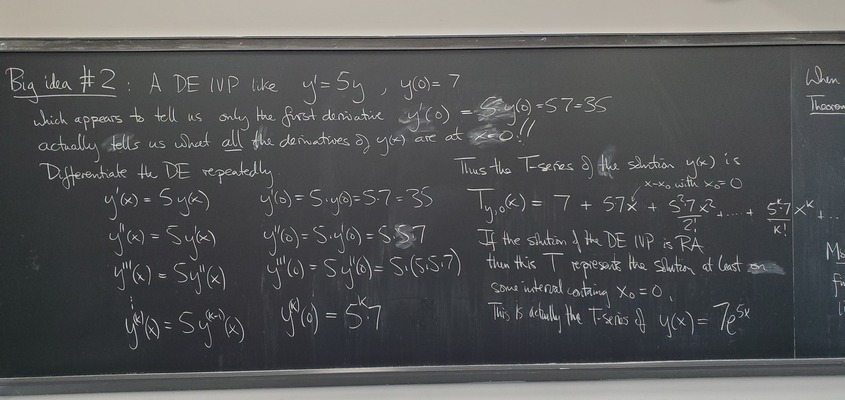 Big idea #2: A DE IVP like y' = 5y , y(0) = 7
which appears to tell us only the first derivative y'(0) = 5·y(0) = 5·7 = 35
actually tells us what all the derivatives of y(x) are at x=0!!
Differentiate the DE repeatedly.
y'(x) = 5y(x) y'(0) = 5·y(0) = 5·7 = 35
y''(x) = 5y'(x) y''(0) = 5·y'(0) = 5·5·7
y'''(x) = 5y''(x) y'''(0) = 5y''(0) = 5·(5·5·7)
⋮
y^(k)(x) = 5y^(k-1)(x) y^(k)(0) = 5^k·7
Thus the T-series of the solution y(x) is
x-x₀ with x₀=0
T_{y,0}(x) = 7 + 5·7x + 5²·7x²/2! + ... + 5^k·7/k! x^k + ...
If the solution of the DE IVP is RA
then this T represents the solution at least on
some interval containing x₀ = 0.
This is actually the T-series of y(x) = 7e^{5x}
When
Theorem